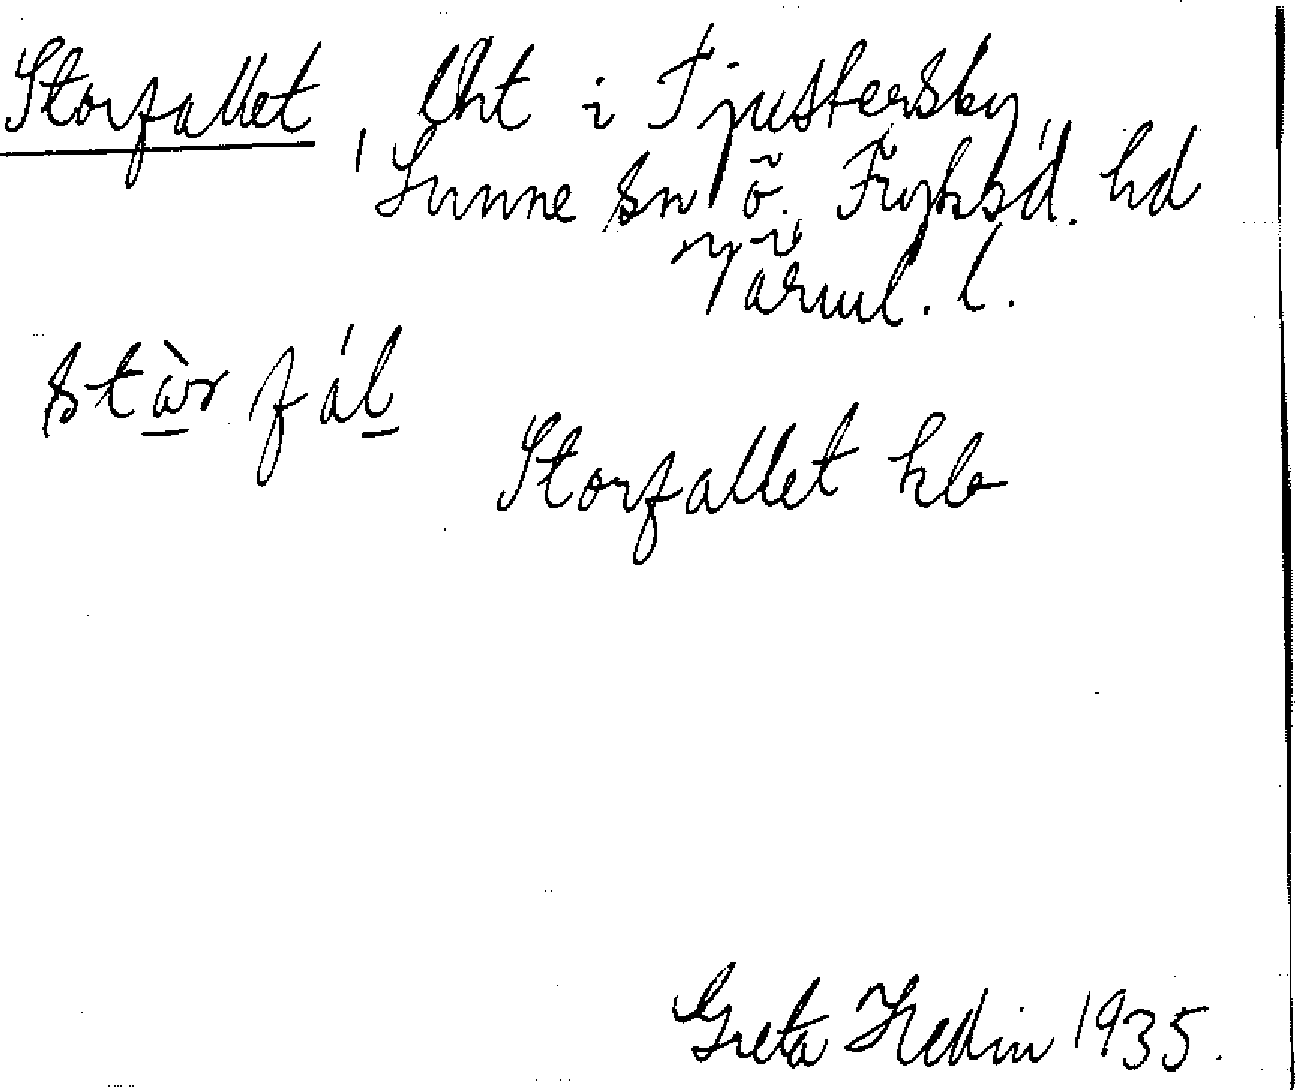 Storfallet, lht i Tjustersby,
Sunne sn Ö. Fryksd. hd
Värml. l.
stàr fál
Storfallet hb
Greta Hedin 1935.